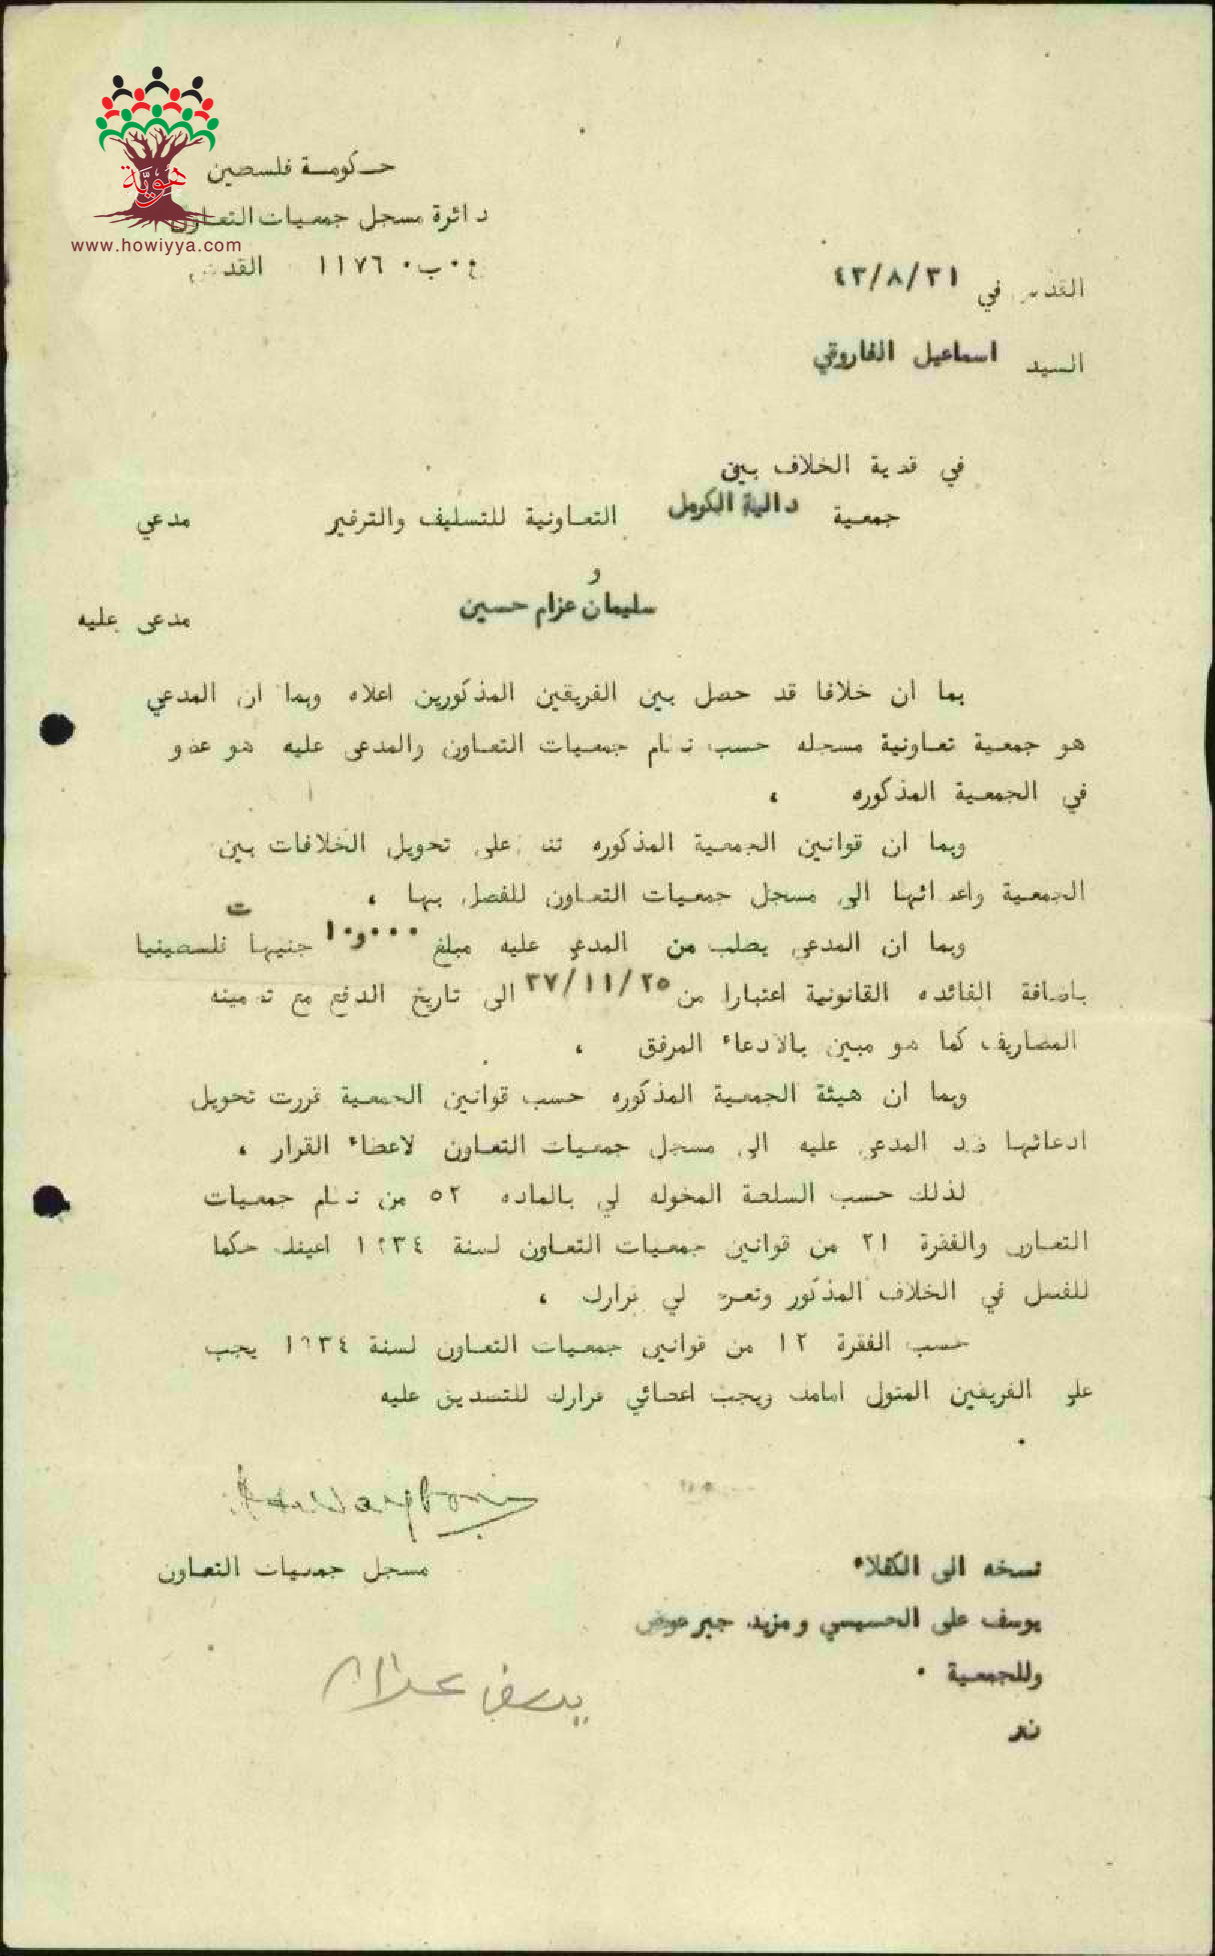 هويّة
www.howiyya.com
حكومة فلسطين
دائرة مسجل جمعيات التعاون
ص٠ب٠ ١١٧٦ القدس
القدس في ٤٣/٨/٣١
السيد اسماعيل الفاروقي
في قضية الخلاف بين
جمعية دالية الكرمل التعاونية للتسليف والتوفير مدعي
و
سليمان عزام حسين مدعى عليه
بما ان خلافا قد حصل بين الفريقين المذكورين اعلاه وبما ان المدعي
هو جمعية تعاونية مسجله حسب نظام جمعيات التعاون والمدعى عليه هو عضو
في الجمعية المذكوره ،
وبما ان قوانين الجمعية المذكوره تنص على تحويل الخلافات بين
الجمعية واعضائها الى مسجل جمعيات التعاون للفصل بها ،
وبما ان المدعي يطلب من المدعي عليه مبلغ ١٠و٠٠٠ جنيها فلسطينيا
باضافة الفائده القانونية اعتبارا من ٣٧/١١/٢٥ الى تاريخ الدفع مع تضمينه
المصاريف كما هو مبين بالادعاء المرفق ،
وبما ان هيئة الجمعية المذكوره حسب قوانين الجمعية قررت تحويل
ادعائها ضد المدعي عليه الى مسجل جمعيات التعاون لاعطاء القرار ،
لذلك حسب السلطة المخوله لي بالماده ٥٢ من نظام جمعيات
التعاون والفقرة ٢١ من قوانين جمعيات التعاون لسنة ١٩٣٤ اعينك حكما
للفصل في الخلاف المذكور وتعرض لي قرارك ،
حسب الفقرة ١٢ من قوانين جمعيات التعاون لسنة ١٩٣٤ يجب
على الفريقين المثول امامك ويجب اعطائي قرارك للتصديق عليه
٠
مسجل جمعيات التعاون
نسخه الى الكفلاء
يوسف على الحسيسي و مزيد جبر عوض
وللجمعية ٠